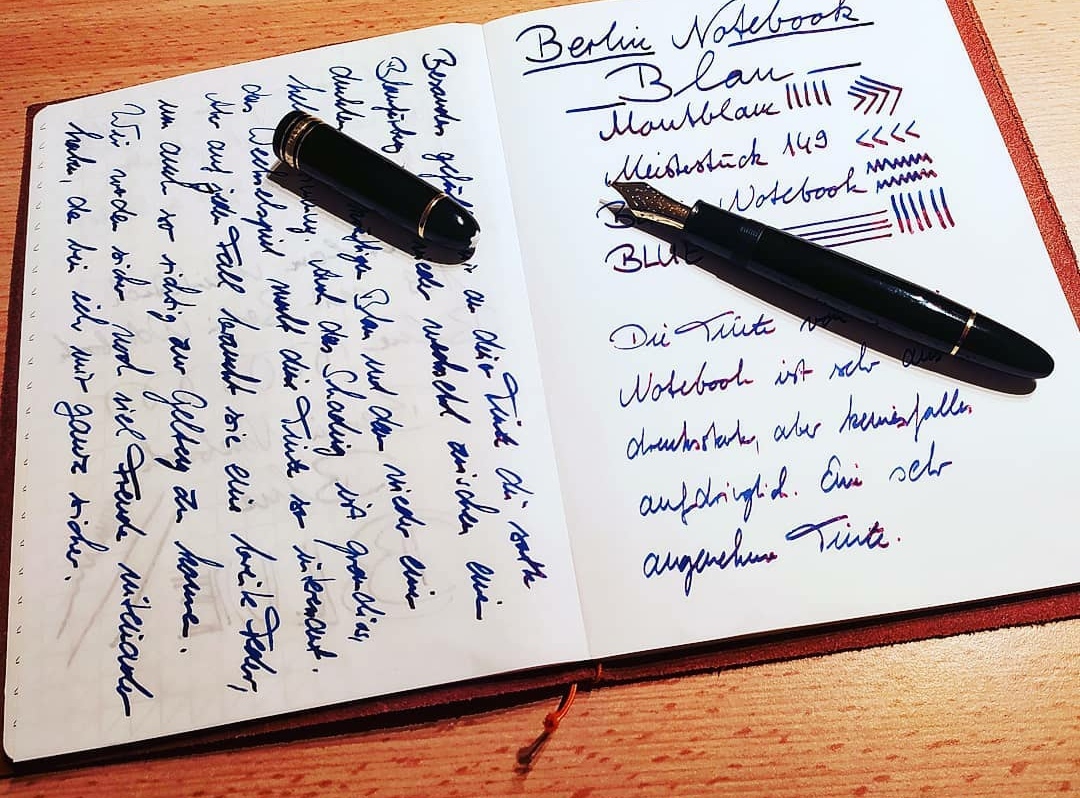 Berlin Notebook
Blau
Montblanc
Meisterstück 149
Notebook
BLUE
Die Tinte von
Notebook ist sehr aus
drucksstark, aber keinesfalls
aufdringlich. Eine sehr
angenehme Tinte.
Besonders an dieser Tinte die satte
Blaufärbung wieder wechselt zwischen eine
dunklen kräftigen Blau und dann wieder eine
Auch das Shading ist grandios,
das Wechselspiel macht diese Tinte so interessant.
auf jeden Fall braucht sie eine breite Feder,
um auch so richtig zur Geltung zu kommen.
Wir werden sicher noch viel Freude miteinander
haben, da bin ich mir ganz sicher.